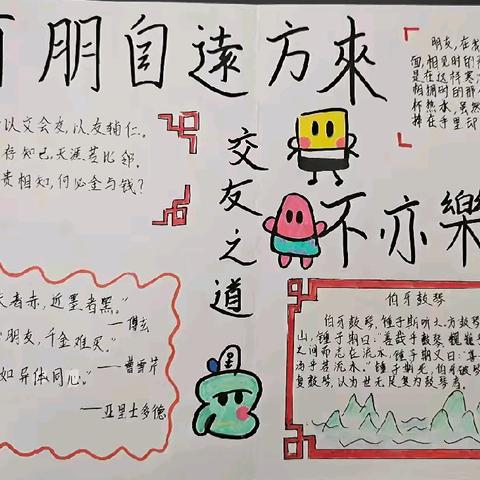 有朋自遠方來
不亦樂
交友之道
以文会友，以友辅仁。
存知己，天涯若比邻。
贵相知，何必金与钱？
朋友，在
面，相见时的
是在这样寒
相拥时的那
杯热水，虽然
捧在手里却
者赤，近墨者黑。”
——傅玄
朋友，千金难买。”
——曹雪芹
如异体同心。”
——亚里士多德
伯牙鼓琴
伯牙鼓琴，锺子斯听之。方鼓琴
山，锺子期曰：“善哉乎鼓琴，巍巍乎
之间而志在流水，锺子期又曰：“善
汤乎若流水。”锺子期死，伯牙破琴
复鼓琴，以为世无足复为鼓琴者。